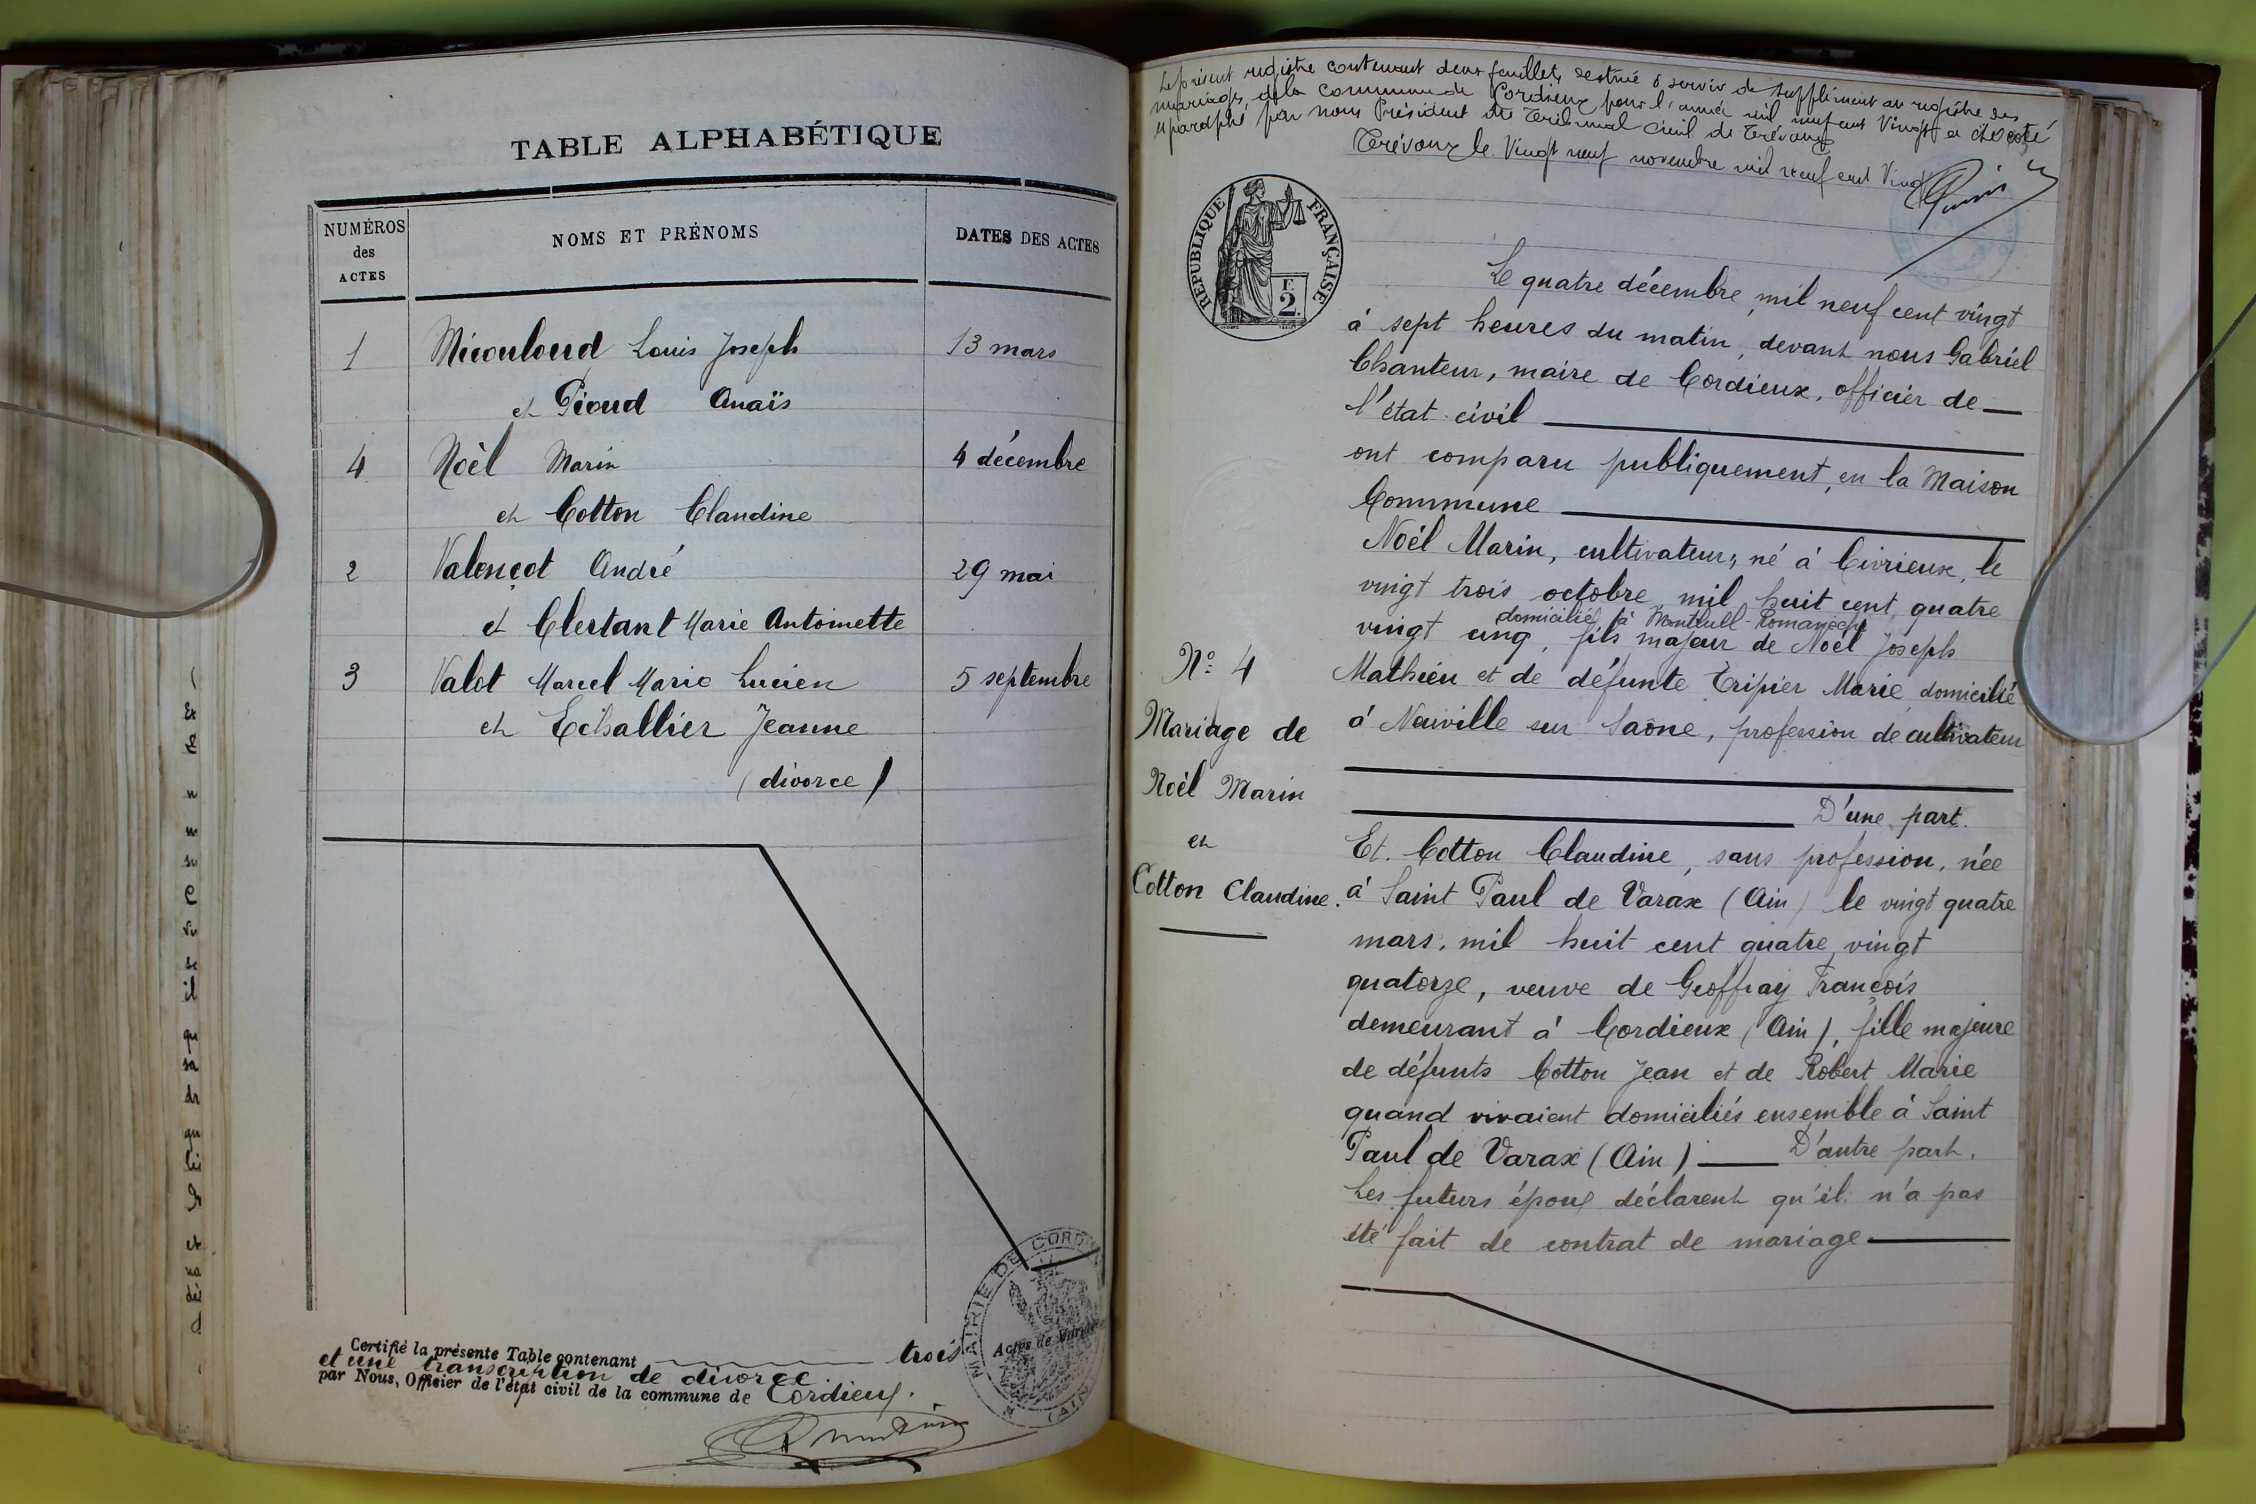 TABLE ALPHABÉTIQUE
NUMÉROS
des
ACTES
NOMS ET PRÉNOMS
DATES DES ACTES
1 Micouloud Louis Joseph 13 mars
et Pioud Anaïs
4 Noèl Marin 4 décembre
et Cotton Claudine
2 Valençot André 29 mai
et Clertant Marie Antoinette
3 Valot Marcel Marie Lucien 5 septembre
et Echallier Jeanne
(divorce)
Certifié la présente Table contenant trois
et une transcription de divorce.
par Nous, Officier de l'état civil de la commune de Cordieux.
MAIRIE DE CORDIEUX
(AIN)
Le présent registre contenant deux feuillets destiné à servir de supplément au registre des
mariages, de la commune de Cordieux pour l'année mil neuf cent Vingt a été coté
et paraphé par nous Président du Tribunal Civil de Trévoux
Trévoux le Vingt neuf novembre mil neuf cent Vingt
RÉPUBLIQUE FRANÇAISE
F.
2.
Le quatre décembre, mil neuf cent vingt
à sept heures du matin, devant nous Gabriel
Chanteur, maire de Cordieux, officier de
l'état civil
ont comparu publiquement, en la Maison
Commune
Noèl Marin, cultivateur, né à Civrieux, le
vingt trois octobre mil huit cent quatre
domicilié à Montluel-Romanèche
vingt cinq, fils majeur de Noèl Joseph
Mathieu et de défunte Tripier Marie domicilié
à Neuville sur Saône, profession de cultivateur
D'une part.
Et. Cotton Claudine, sans profession, née
à Saint Paul de Varax (Ain) le vingt quatre
mars, mil huit cent quatre vingt
quatorze, veuve de Geoffray François
demeurant à Cordieux (Ain), fille majeure
de défunts Cotton Jean et de Robert Marie
quand vivaient domiciliés ensemble à Saint
Paul de Varax (Ain) D'autre part.
Les futurs époux déclarent qu'il n'a pas
été fait de contrat de mariage
No 4
Mariage de
Noèl Marin
et
Cotton Claudine.